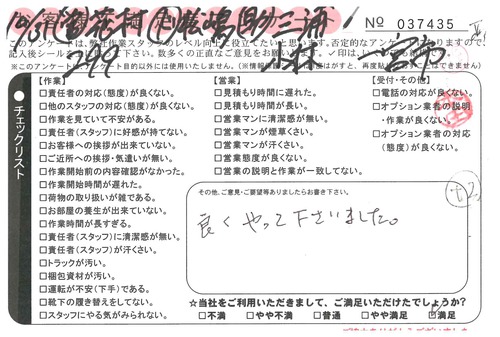 No 037435
このアンケートは、弊社作業スタッフのレベル向上に役立てたいと思います。否定的なアンケートになりますので、
チェックリスト
【作業】
□責任者の対応(態度)が良くない。
□他のスタッフの対応(態度)が良くない。
□作業を見ていて不安がある。
□責任者(スタッフ)に好感が持てない。
□お客様への挨拶が出来ていない。
□ご近所への挨拶・気遣いが無い。
□作業開始前の内容確認がなかった。
□作業開始時間が遅れた。
□荷物の取り扱いが雑である。
□お部屋の養生が出来ていない。
□作業時間が長すぎる。
□責任者(スタッフ)に清潔感が無い。
□責任者(スタッフ)が汗くさい。
□トラックが汚い。
□梱包資材が汚い。
□運転が不安(下手)である。
□靴下の履き替えをしてない。
□スタッフにやる気がみられない。
【営業】
□見積もり時間に遅れた。
□見積もり時間が長い。
□営業マンに清潔感が無い。
□営業マンが煙草くさい。
□営業マンが汗くさい。
□営業態度が良くない。
□営業の説明と作業が一致してない。
【受付・その他】
□電話の対応が良くない。
□オプション業者の説明
・作業が良くない。
□オプション業者の対応
(態度)が良くない。
その他、ご意見・ご要望等ありましたらお書き下さい。
良くやって下さいました。
☆当社をご利用いただきまして、ご満足いただけたでしょうか?
□不満 □やや不満 □普通 □やや満足 ☑満足